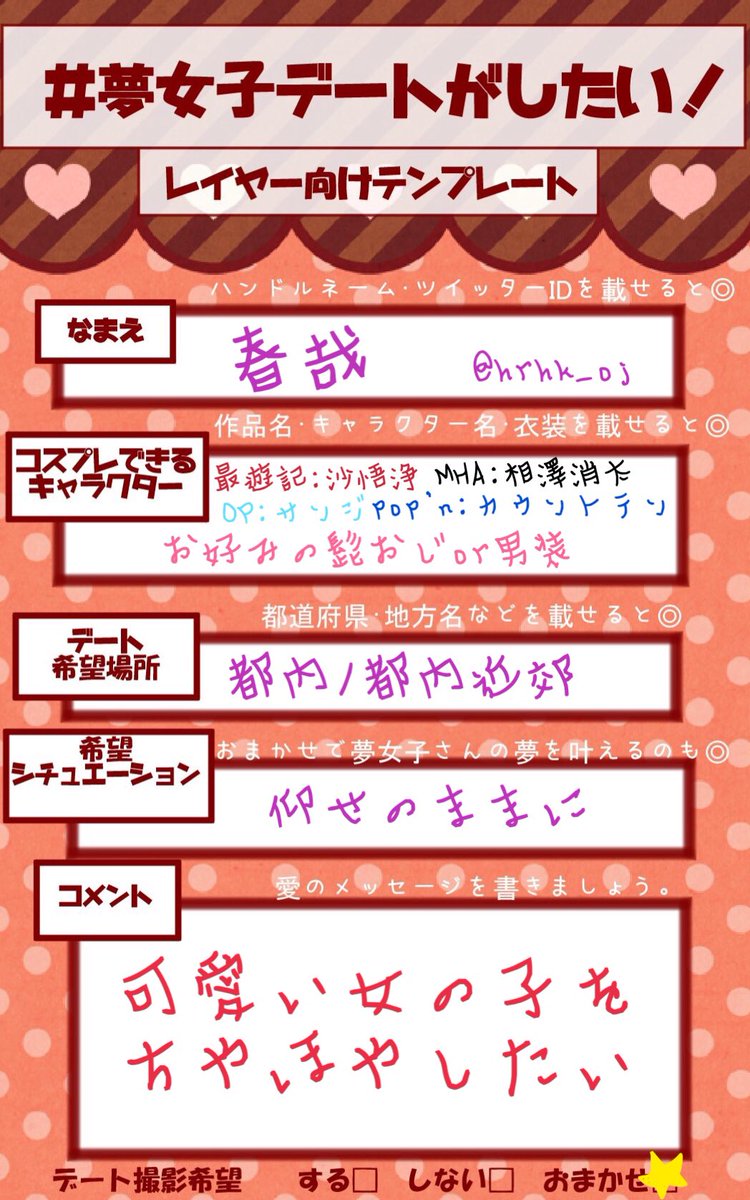 #夢女子デートがしたい!
レイヤー向けテンプレート
ハンドルネーム・ツイッターIDを載せると◎
なまえ
春哉 @hrhk_oj
作品名・キャラクター名・衣装を載せると◎
コスプレできる
キャラクター
最遊記:沙悟浄 MHA:相澤消太
OP:サンジ Pop'n:カウントテン
お好みの髭おじor男装
都道府県・地方名などを載せると◎
デート
希望場所
都内/都内近郊
おまかせで夢女子さんの夢を叶えるのも◎
希望
シチュエーション
仰せのままに
愛のメッセージを書きましょう。
コメント
可愛い女の子を
ちやほやしたい
デート撮影希望 する□ しない□ おまかせ